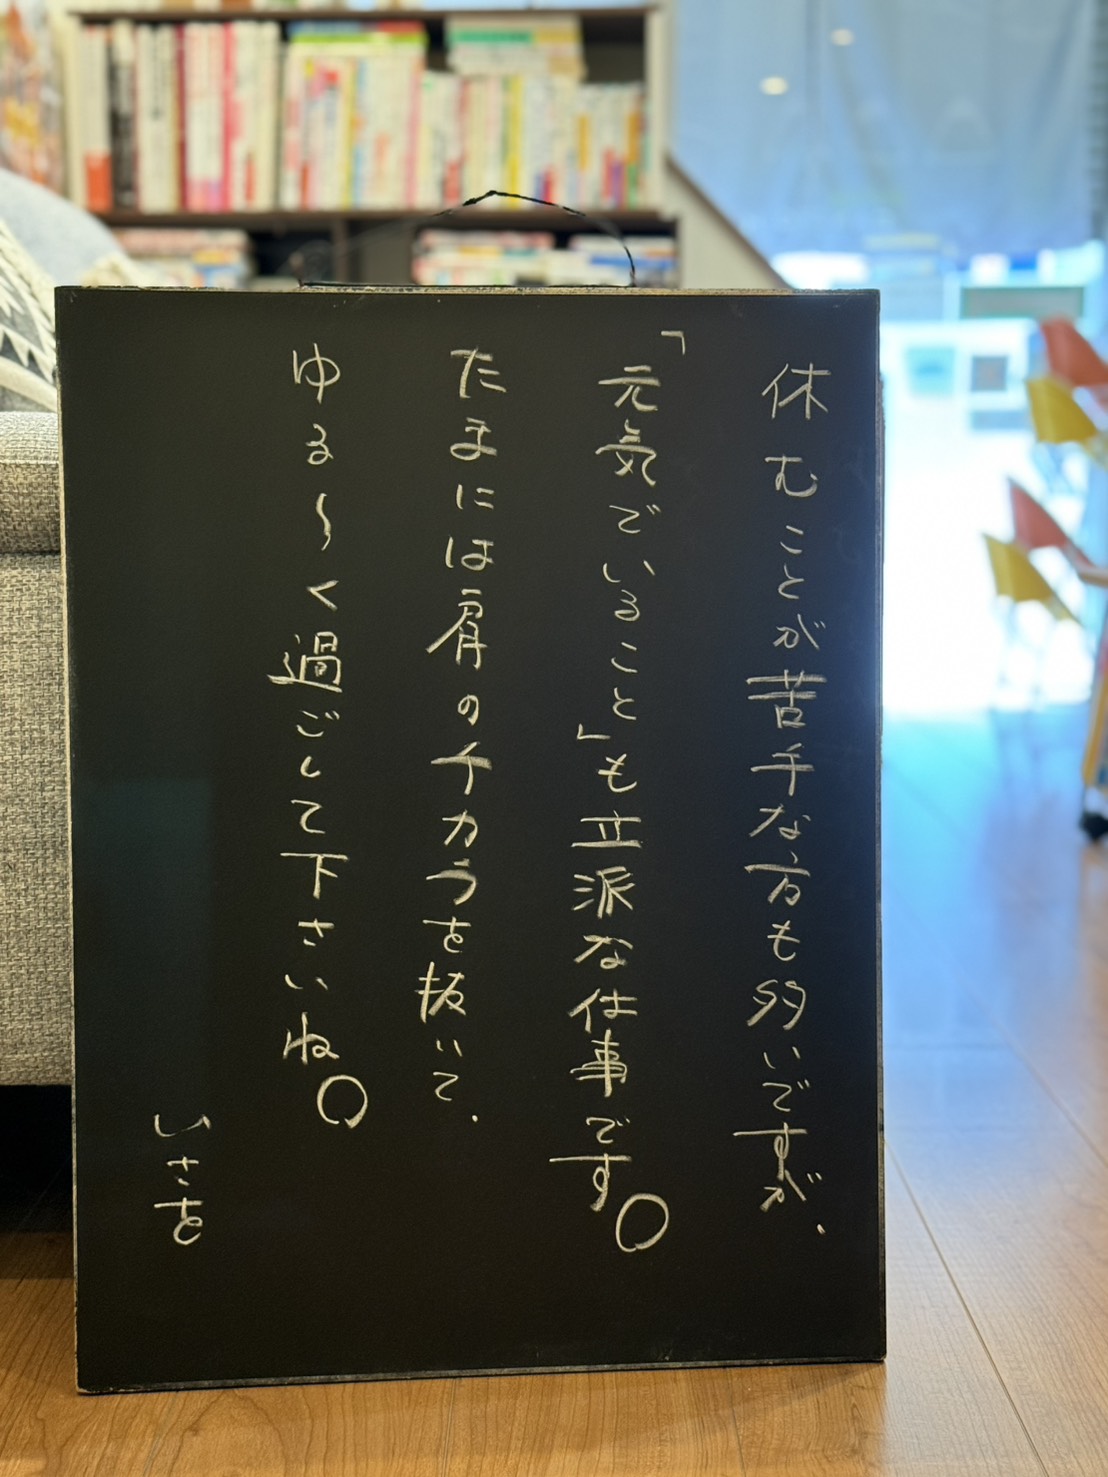 休むことが苦手な方も多いですが、
「元気でいること」も立派な仕事です。
たまには肩のチカラを抜いて、
ゆる〜く過ごして下さいね。
いさを